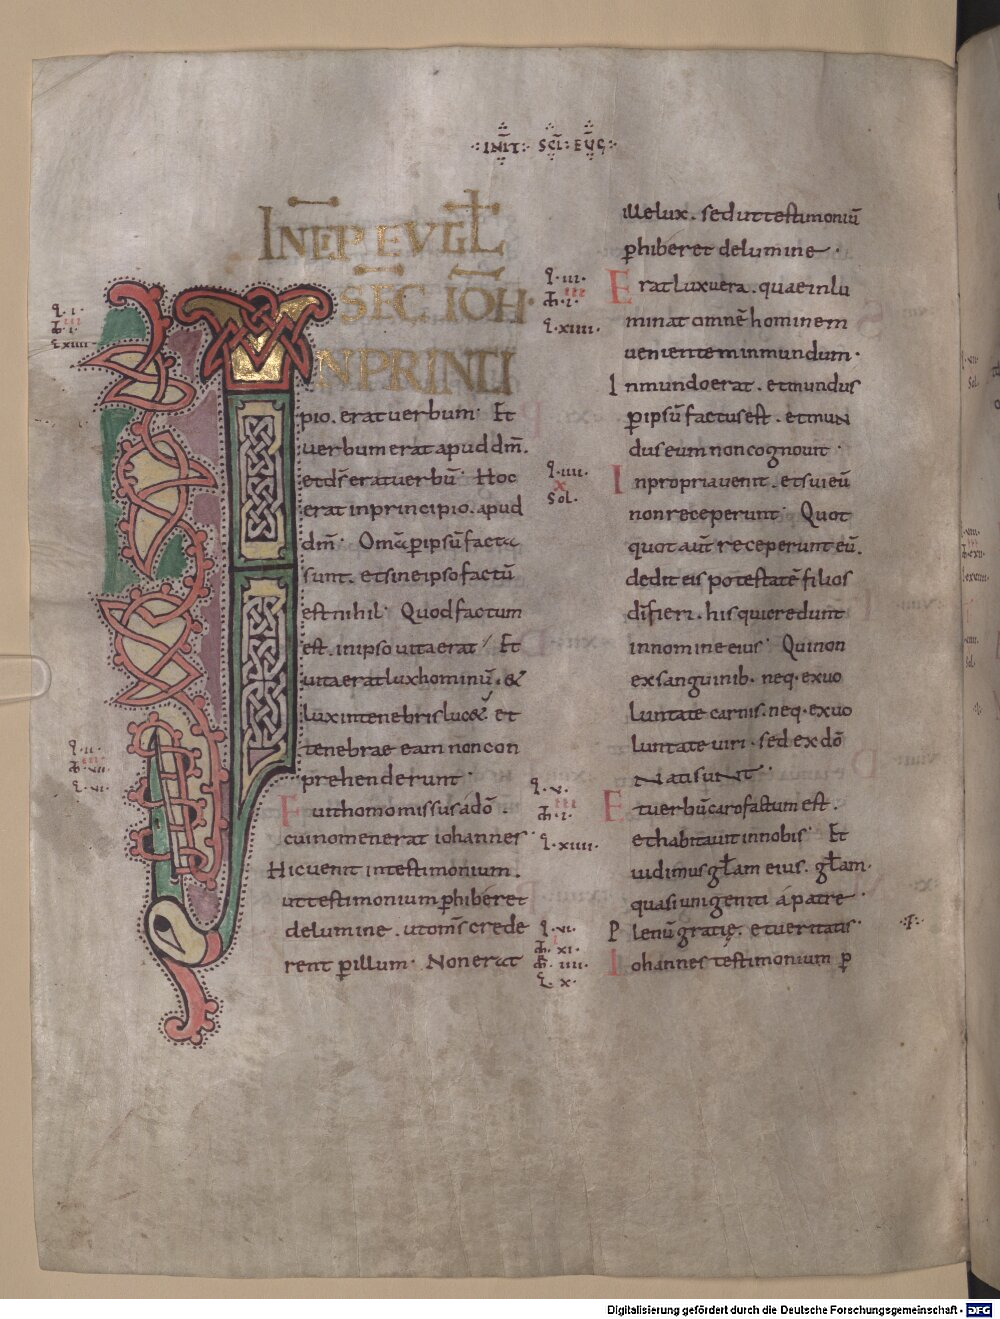 ·INIT· SCI· EVG·
INCIP EVGL
SEC IOH·
IN PRINCI
pio. erat uerbum· Et
uerbum erat apud dm̄.
et ds̄ erat uerbū· Hoc
erat in principio. apud
dm̄· Om̄a p ipsū facta
sunt. et sine ipso factū
est nihil· Quod factum
est. in ipso uita erat· Et
uita erat lux hominū. &
lux in tenebris luc&. et
tenebrae eam non con
prehenderunt·
Fuit homo missus a dō.
cui nomen erat iohannes·
Hic uenit in testimonium.
ut testimonium phiberet
de lumine. ut om̄s crede
rent p illum· Non erat
ille lux. sed ut testimoniū
phiberet de lumine·
Erat lux uera. quae inlu
minat omnē hominem
uenientem in mundum·
In mundo erat. et mundus
p ipsū factus est. et mun
dus eum non cognouit·
In propria uenit. et sui eū
non receperunt· Quot
quot aūt receperunt eū.
dedit eis potestatē filios
dī fieri. his qui credunt
in nomine eius· Qui non
ex sanguinib. neq. ex uo
luntate carnis. neq. ex uo
luntate uiri. sed ex dō
nati sunt·
Et uerbū caro factum est.
et habitauit in nobis· Et
uidimus głam eius. głam
quasi unigeniti á patre·
Plenū gratię. et ueritatis·
Iohannes testimonium p
q· i·
q· iii·
q· iiii·
Sol.
q· ii·
q· v·
q· vi·
Digitalisierung gefördert durch die Deutsche Forschungsgemeinschaft - DFG